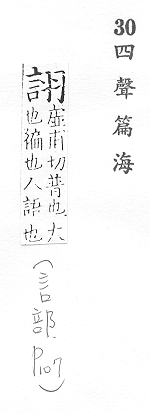 30四聲篇海
詡虛甫切普也大
也徧也人語也
(言部.P.107)